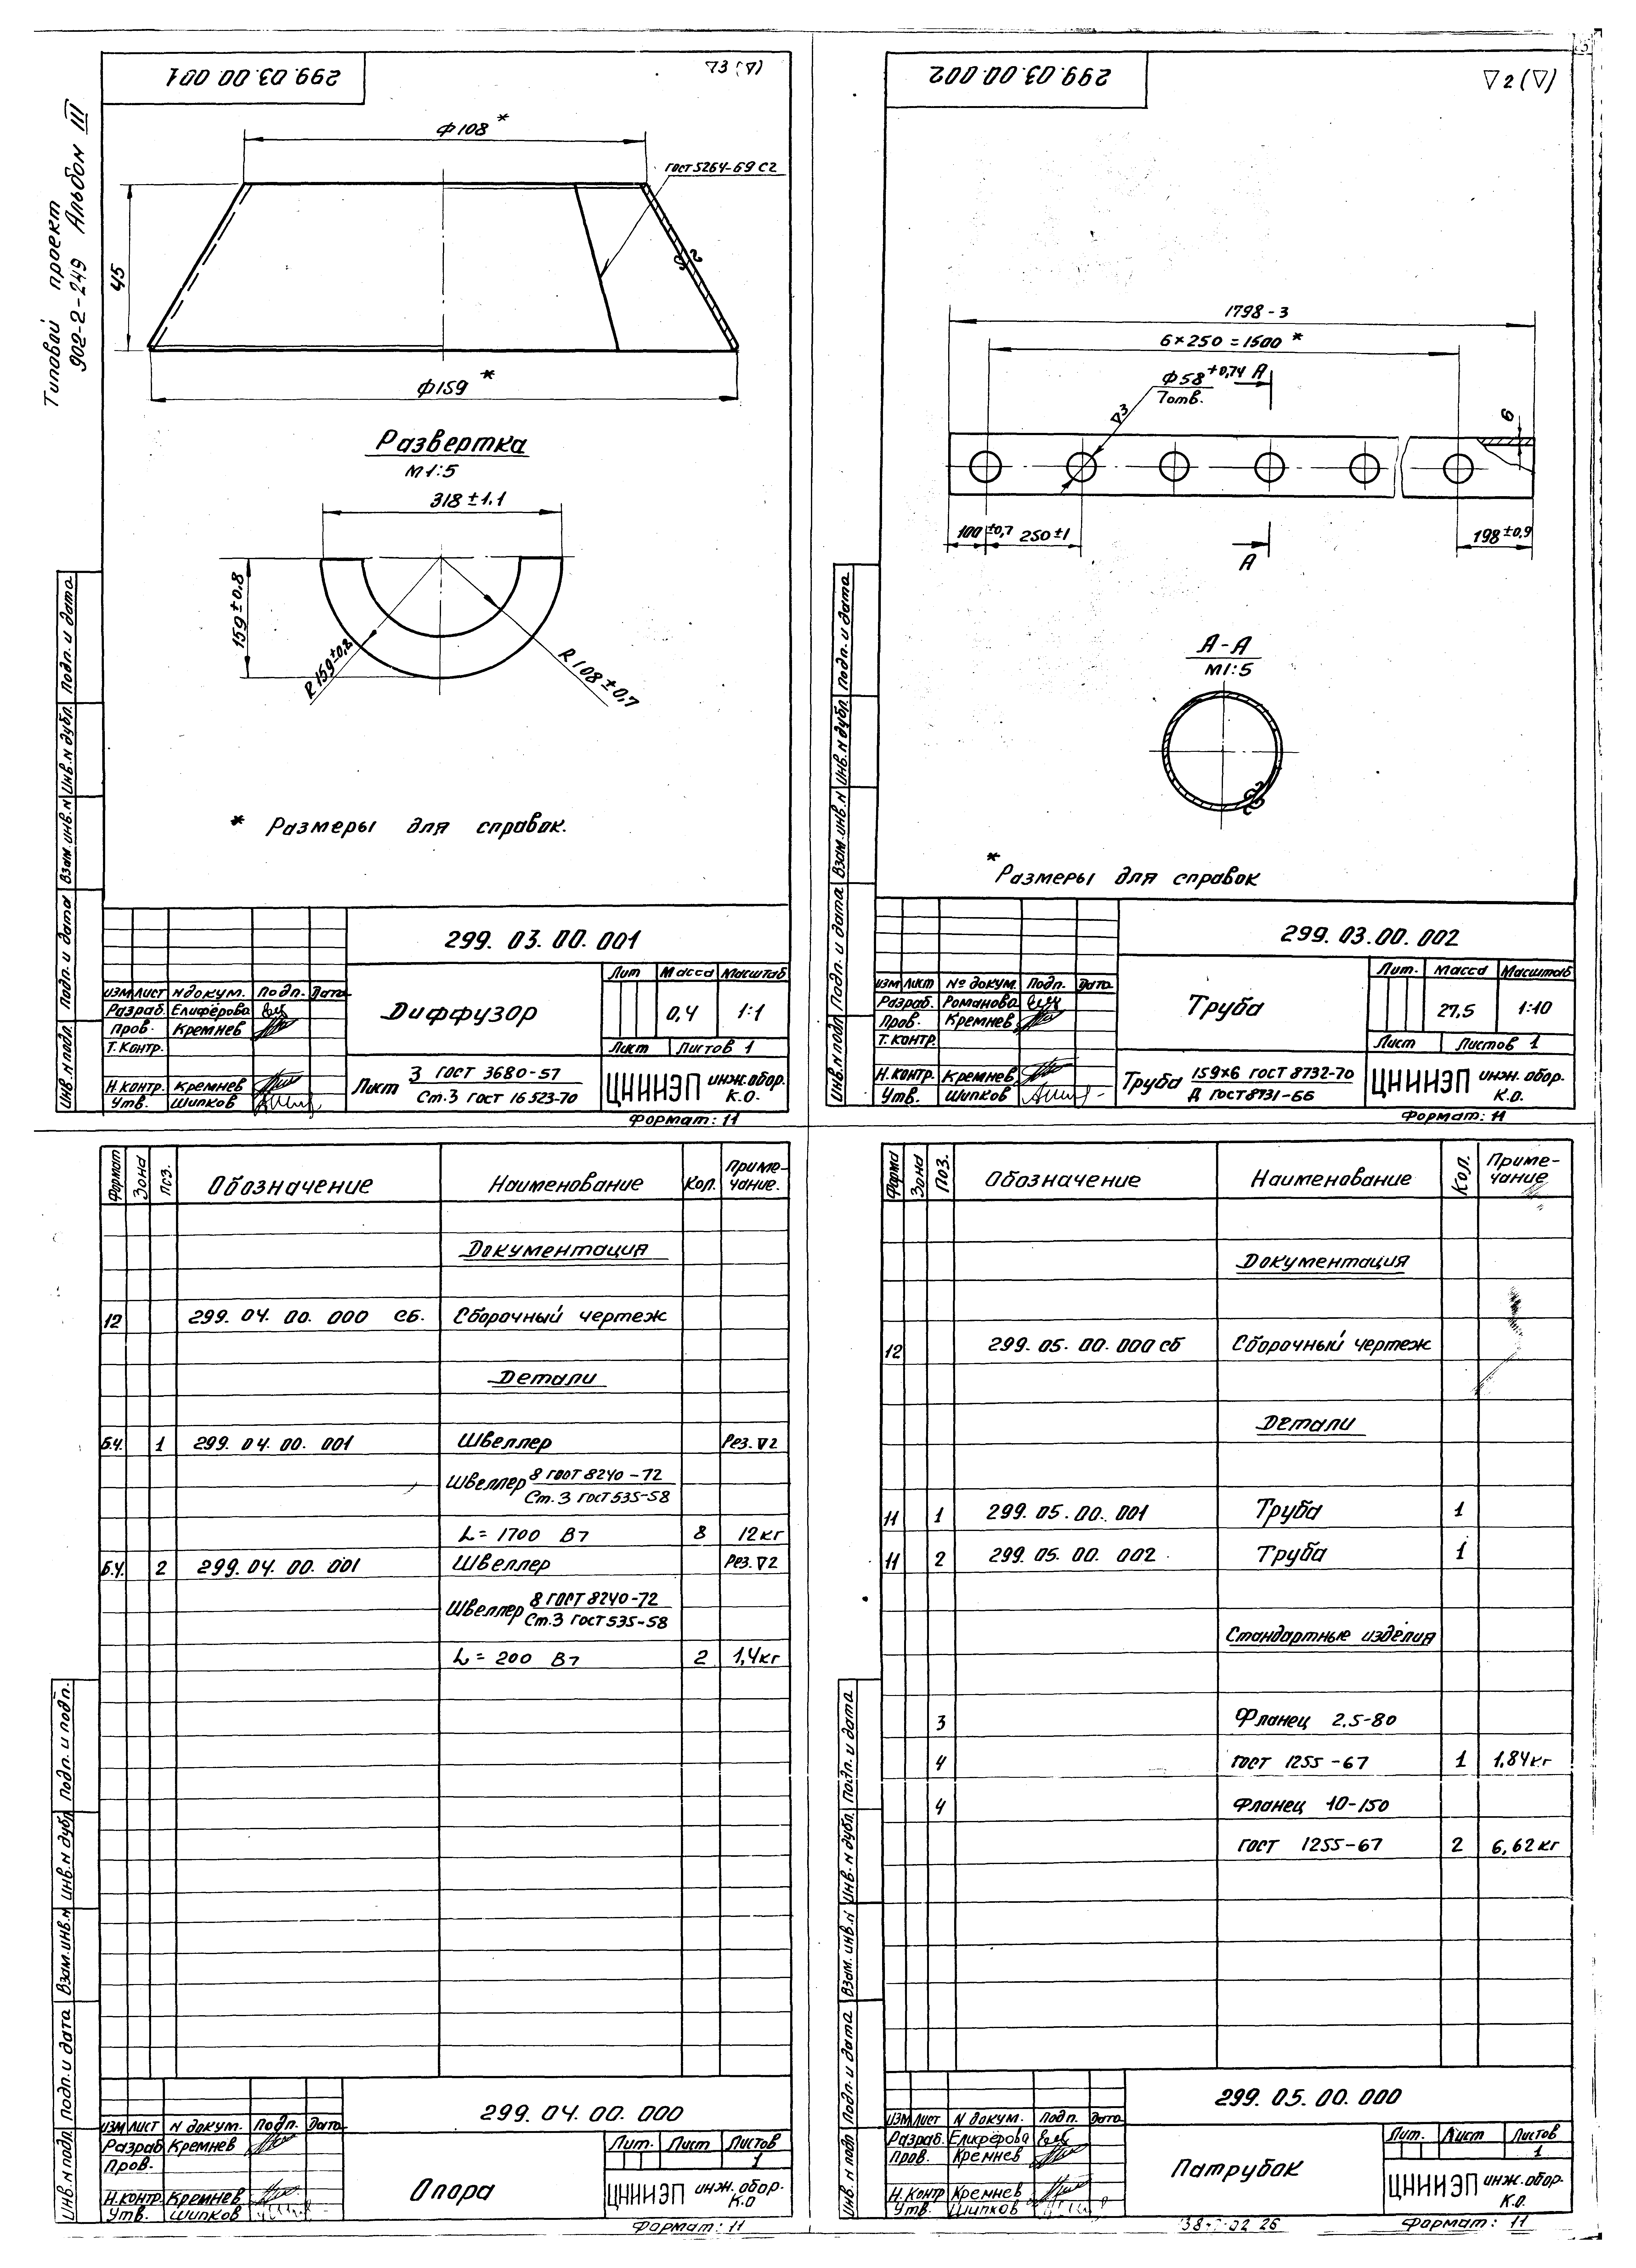 Типовой проект
902-2-249 Альбом III
299.03.00.001
▽3 (▽)
Ф108 *
ГОСТ 5264-69 С2
45
Ф159 *
Развертка
М 1:5
318 ±1,1
159±0,8
R 159±0,8
R 108±0,7
* Размеры для справок.
Подп. и дата
Инв.N дубл.
Взам.инв.N
Подп. и дата
Инв.N подл.
299. 03. 00. 001
Изм Лист N докум. Подп. Дата
Разраб. Елифёрова
Пров. Кремнев
Т. контр.
Н. контр. Кремнев
Утв. Шипков
Диффузор
Лит Масса Масштаб
0,4 1:1
Лист Листов 1
Лист 3 ГОСТ 3680-57
Ст.3 ГОСТ 16523-70
ЦНИИЭП инж.обор.
К.О.
Формат: 11
299.03.00.002
▽2 (▽)
1798-3
6×250=1500 *
Ф58 +0,74
7отв.
▽3
А
6
100±0,7
250±1
198±0,9
А
А-А
М1:5
* Размеры для справок
Подп. и дата
Инв.N дубл.
Взам.инв.N
Подп. и дата
Инв.N подл.
299.03.00.002
Изм Лист № докум. Подп. Дата
Разраб. Романова
Пров. Кремнев
Т. контр.
Н. контр. Кремнев
Утв. Шипков
Труба
Лит. Масса Масштаб
27,5 1:10
Лист Листов 1
Труба 159×6 ГОСТ 8732-70
Д ГОСТ 8731-66
ЦНИИЭП инж.обор.
К.О.
Формат: 11
Формат Зона Поз. Обозначение Наименование Кол. Приме-
чание.
Документация
12 299. 04. 00. 000 сб. Сборочный чертеж
Детали
Б.Ч. 1 299. 04. 00. 001 Швеллер Рез. ▽2
Швеллер 8 ГОСТ 8240-72
Ст.3 ГОСТ 535-58
L= 1700 В7 8 12кг
Б.Ч. 2 299. 04. 00. 001 Швеллер Рез. ▽2
Швеллер 8 ГОСТ 8240-72
Ст.3 ГОСТ 535-58
L= 200 В7 2 1,4кг
Подп. и подп.
Инв.N дубл.
Взам.инв.N
Подп. и дата
Инв.N подл.
299. 04. 00. 000
Изм Лист N докум. Подп. Дата
Разраб Кремнев
Пров.
Н. контр. Кремнев
Утв. Шипков
Опора
Лит. Лист Листов
1
ЦНИИЭП инж.обор.
К.О
Формат: 11
Форма Зона Поз. Обозначение Наименование Кол. Приме-
чание
Документация
12 299. 05. 00. 000 сб Сборочный чертеж
Детали
11 1 299. 05. 00. 001 Труба 1
11 2 299. 05. 00. 002 Труба 1
Стандартные изделия
3 Фланец 2,5-80
4 ГОСТ 1255-67 1 1,84кг
4 Фланец 10-150
ГОСТ 1255-67 2 6,62кг
Подп. и дата
Инв.N дубл.
Взам. инв.N
Подп. и дата
Инв.N подл
299. 05. 00. 000
Изм Лист N докум. Подп. Дата
Разраб. Елиферова
Пров. Кремнев
Н. контр Кремнев
Утв. Шипков
Патрубок
Лит. Лист Листов
1
ЦНИИЭП инж.обор.
К.О.
Формат: 11